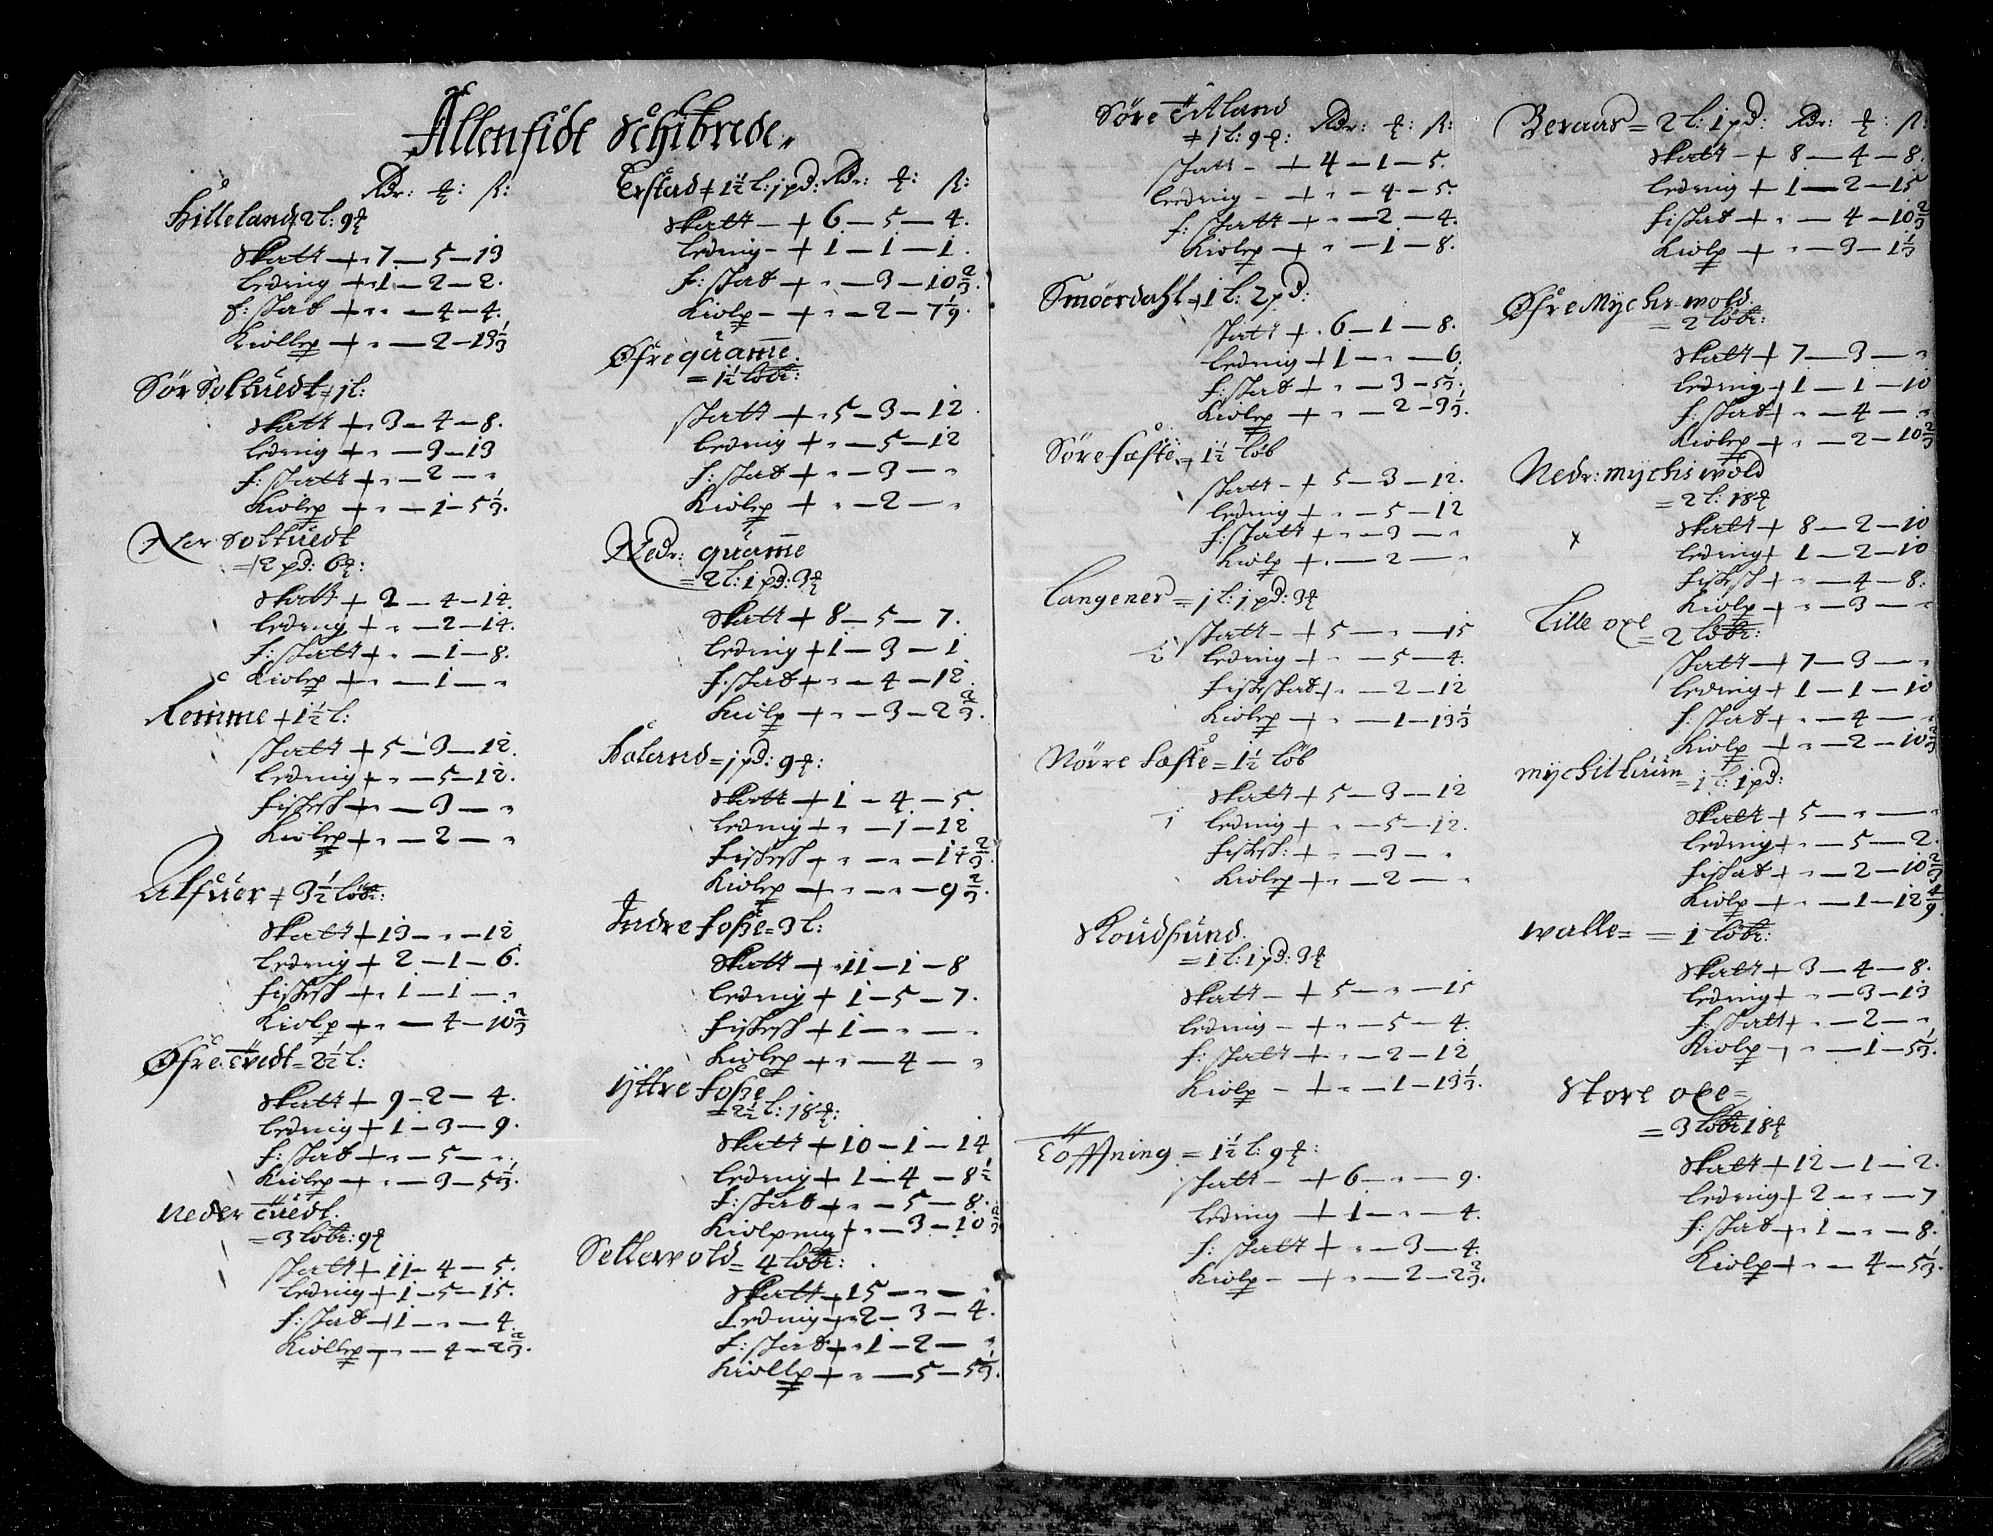 Allenfidt Schibrede
Rdr: ↊: ß:
Hilleland 2 l: 9 ↊
Skatt + 7 — 5 — 13
Leding + 1 — 2 — 2.
f: skat + „ — 4 — 4.
Kiollep + „ — 2 — 13 1/3
Sör Soltuedt = 1 l:
Skatt + 3 — 4 — 8.
Leding + „ — 3 — 13
f: skatt + „ — 2 — „
Kiolep + „ — 1 — 5 1/3.
Nör Soltuedt
= 2 pd: 6 ↊:
Skatt + 2 — 4 — 14.
Leding + „ — 2 — 14.
f: skatt + „ — 1 — 8.
Kiolep + „ — 1 — „
Remme + 1 1/2 l:
skatt + 5 — 3 — 12.
Leding + „ — 5 — 12.
fiskesk + „ — 3 — „
Kiolep + „ — 2 — „
Alfuer + 3 1/2 löbr:
Skatt + 13 — „ — 12
Leding + 2 — 1 — 6.
fiskesk + 1 — 1 — „
Kiolp + „ — 4 — 10 2/3
Øfre Tvedt = 2 1/2 l:
Skatt + 9 — 2 — 4.
Leding + 1 — 3 — 9.
f: skat + „ — 5 — „
Kiolep + „ — 3 — 5 1/3.
Neder Tuedt.
= 3 löbr: 9 ↊
skatt + 11 — 4 — 5.
Leding + 1 — 5 — 15.
f: skat + 1 — „ — 4.
Kiollep + „ — 4 — 2 2/3.
Erstad + 1 1/2 l: 1 pd: Rdr: ↊: ß:
Skatt — + 6 — 5 — 4.
Leding — + 1 — 1 — 1.
f: skat + „ — 3 — 10 2/3.
Kiolp — + „ — 2 — 7 1/9.
Øfre quamme.
= 1 1/2 löbr:
skatt + 5 — 3 — 12.
Leding + „ — 5 — 12
f: skat + „ — 3 — „
Kiolep + „ — 2 — „
Nedr: quamme
= 2 l: 1 pd: 3 ↊
Skatt + 8 — 5 — 7.
Leding + 1 — 3 — 1
f: skat + „ — 4 — 12.
Kiolp + „ — 3 — 2 2/3.
Holand = 1 pd: 9 ↊:
Skatt + 1 — 4 — 5.
Leding + „ — 1 — 12
fiskesk + „ — „ — 14 2/3.
Kiolep + „ — „ — 9 2/3.
Indre foße = 3 l:
Skatt + 11 — 1 — 8
Leding + 1 — 5 — 7.
fiskesk + 1 — „ — „
Kiolep + „ — 4 — „
ÿttre foße
= 2 1/2 l: 18 ↊:
Skatt + 10 — 1 — 14
Leding + 1 — 4 — 8 1/2
f: skat + „ — 5 — 8.
Kiolpeng + „ — 3 — 10 2/3
Settervold = 4 löbr:
Skatt + 15 — „ — „
Leding + 2 — 3 — 4.
f: skat + 1 — 2 — „
Kiollp + „ — 5 — 5 1/3.
Söre Titland
+ 1 l: 9 ↊: Rdr: ↊: ß:
skatt — + 4 — 1 — 5.
Leding — + „ — 4 — 5.
f: skatt + „ — 2 — 4.
Kiolep — + „ — 1 — 8.
Smöerdahl + 1 l: 2 pd:
skatt + 6 — 1 — 8.
Leding + 1 — „ — 6.
f: skat + „ — 3 — 5 1/3.
Kiolep + „ — 2 — 3 1/3.
Söre sæfte = 1 1/2 löb
skatt — + 5 — 3 — 12.
Leding + „ — 5 — 12
f: skatt + „ — 3 — „
Kiolp + „ — 2 — „
Langener = 1 l: 1 pd: 3 ↊
skatt — + 5 — „ — 15
Leding + „ — 5 — 4.
fiskeskat + „ — 2 — 12
Kiolep — + „ — 1 — 13 1/3
Nörre sæfte = 1 1/2 löb
Skatt + 5 — 3 — 12
Leding + „ — 5 — 12.
fiskesk: + „ — 3 — „
Kiolep + „ — 2 — „
Skoudsund.
= 1 l: 1 pd: 3 ↊
Skatt — + 5 — „ — 15
Leding — + „ — 5 — 4.
f: skatt + „ — 2 — 12
Kiolp — + „ — 1 — 13 1/3.
Töffning = 1 1/2 l: 9 ↊:
skatt — + 6 — „ — 9.
Leding + 1 — „ — 4.
f: skatt + „ — 3 — 4.
Kiolp — + „ — 2 — 2 2/3.
Beraas = 2 l: 1 pd: Rdr: ↊: ß:
Skatt — + 8 — 4 — 8.
Leding + 1 — 2 — 15
fiskat + „ — 4 — 10 2/3
Kiolp + „ — 3 — 1 1/3
Øfre Myche wold.
= 2 löbr:
Skatt + 7 — 3 — „
Leding + 1 — 1 — 10
f: skat + „ — 4 — „
Kiolep + „ — 2 — 10 2/3
Nedr: mychis wold
= 2 l: 18 ↊
x
Skatt + 8 — 2 — 10
Leding + 1 — 2 — 10
fiskesk + „ — 4 — 8.
Kiolp + „ — 3 — „
Lille oxe
= 2 löbr:
skatt + 7 — 3 — „
Leding + 1 — 1 — 10
f: skat + „ — 4 — „
Kiolp + „ — 2 — 10 2/3
mychiltuun
= 1 l: 1 pd:
Skatt + 5 — „ — „
Leding + „ — 5 — 2.
fiskat + „ — 2 — 10 2/3
Kiolp + „ — 1 — 12 4/9.
walle = = 1 löbr:
Skatt + 3 — 4 — 8.
Leding + „ — 3 — 13
f: skatt + „ — 2 — „
Kiolp + „ — 1 — 5 1/3.
Store oxe =
= 3 löbr 18 ↊
Skatt + 12 — 1 — 2.
Leding + 2 — „ — 7
f: skat + 1 — „ — 8.
Kiolp + „ — 4 — 5 1/3.